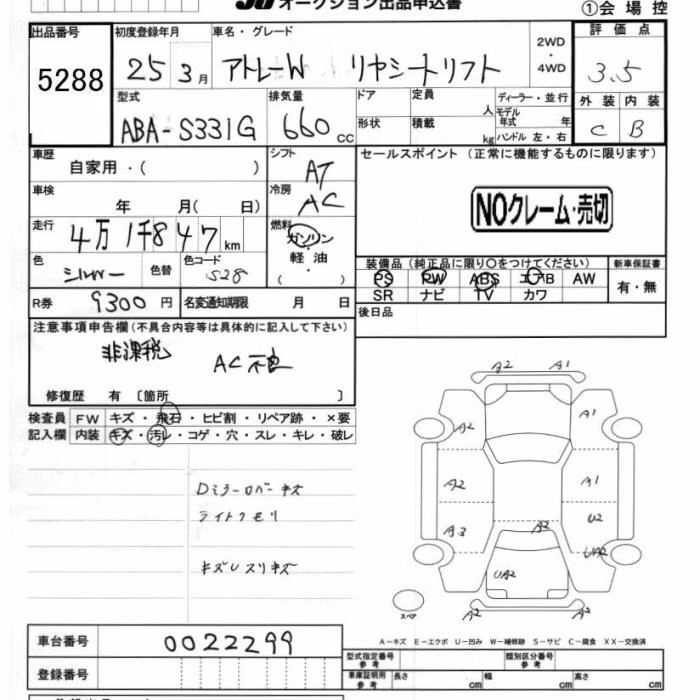 オークション出品申込書
①会 場 控
出品番号 5288
初度登録年月 25 3月
車名・グレード アトレーW リヤシートリフト
2WD・4WD
評価点 3.5
外装 C 内装 B
型式 ABA-S331G
排気量 660 cc
ドア 形状
定員 人 積載 kg
ディーラー・並行
モデル年式 年
ハンドル 左・右
車歴 自家用・( )
シフト AT
車検 年 月( 日)
冷房 AC
走行 4万1千847km
燃料 ガソリン・軽油・( )
色 シルバー 色替
色コード S28
R券 9300円
名変通知期限 月 日
セールスポイント (正常に機能するものに限ります)
NOクレーム・売切
装備品(純正品に限り○をつけてください)
PS PW ABS エアB AW
SR ナビ TV カワ
新車保証書 有・無
後日品
注意事項申告欄(不具合内容等は具体的に記入して下さい)
非課税 AC不良
修復歴 有 〔箇所 〕
検査員記入欄
FW キズ・飛石・ヒビ割・リペア跡・×要
内装 キズ・汚レ・コゲ・穴・スレ・キレ・破レ
Dミラーカバーキズ
ライトクモリ
キズUスリキズ
A2 A1
A2 A1
A2 A1
A3 A2 U2
UA2
UA2
スペア A2 A2
A-キズ E-エクボ U-凹み W-補修跡 S-サビ C-腐食 XX-交換済
車台番号 0022299
登録番号
型式指定番号 参考
類別区分番号 参考
車庫証明用 参考 長さ cm 幅 cm 高さ cm